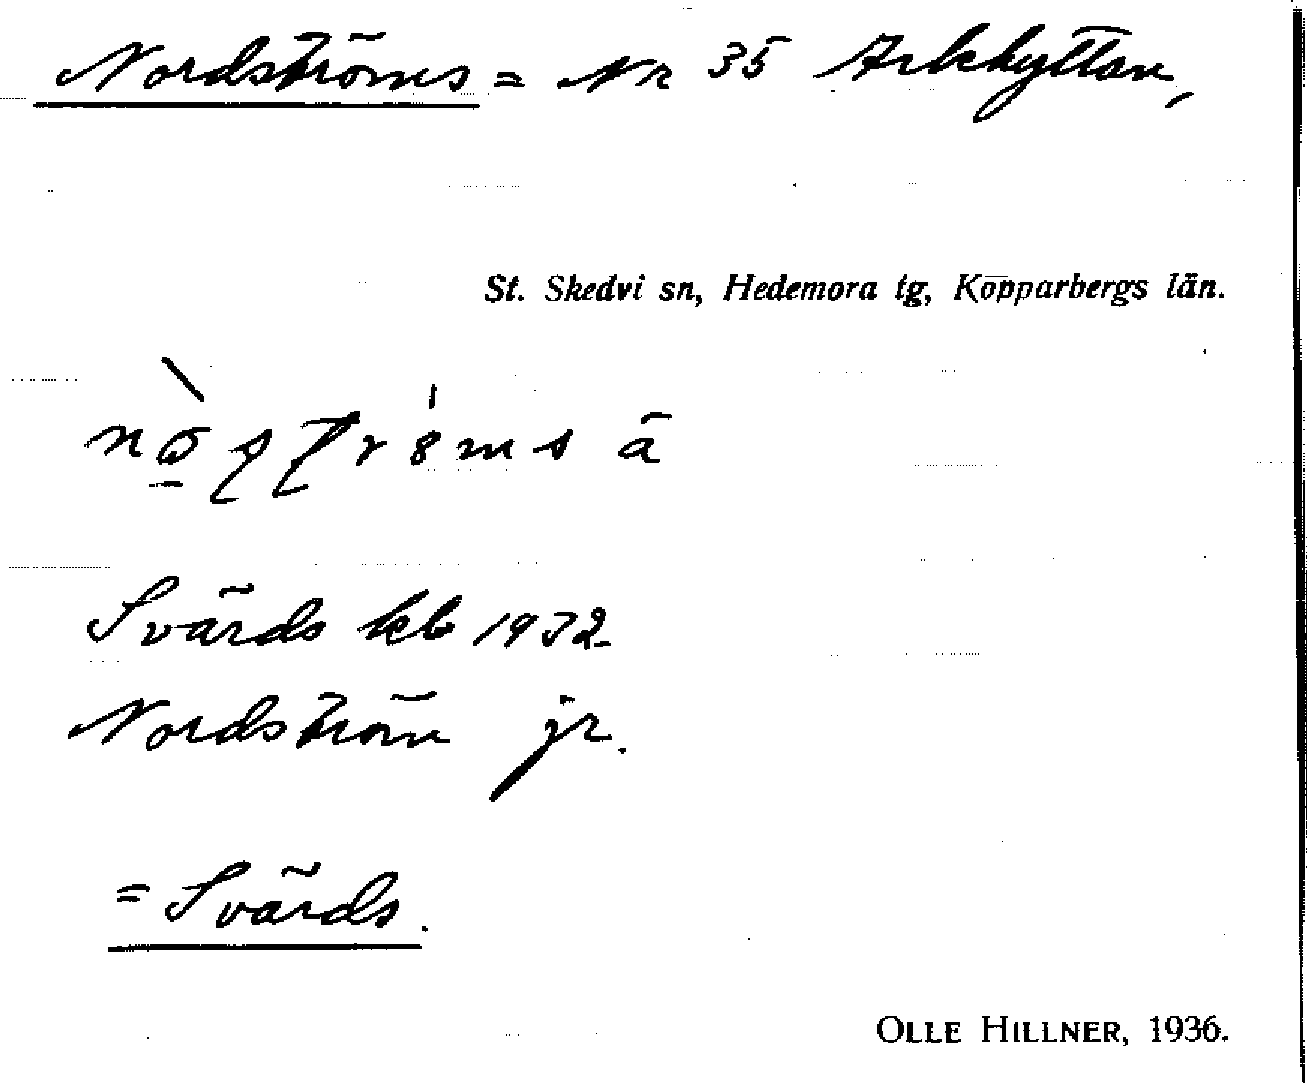 Nordströms = Nr 35 Arkhyttan,
St. Skedvi sn, Hedemora tg, Kopparbergs län.
Svärds kb 1932
Nordström jr.
= Svärds.
OLLE HILLNER, 1936.